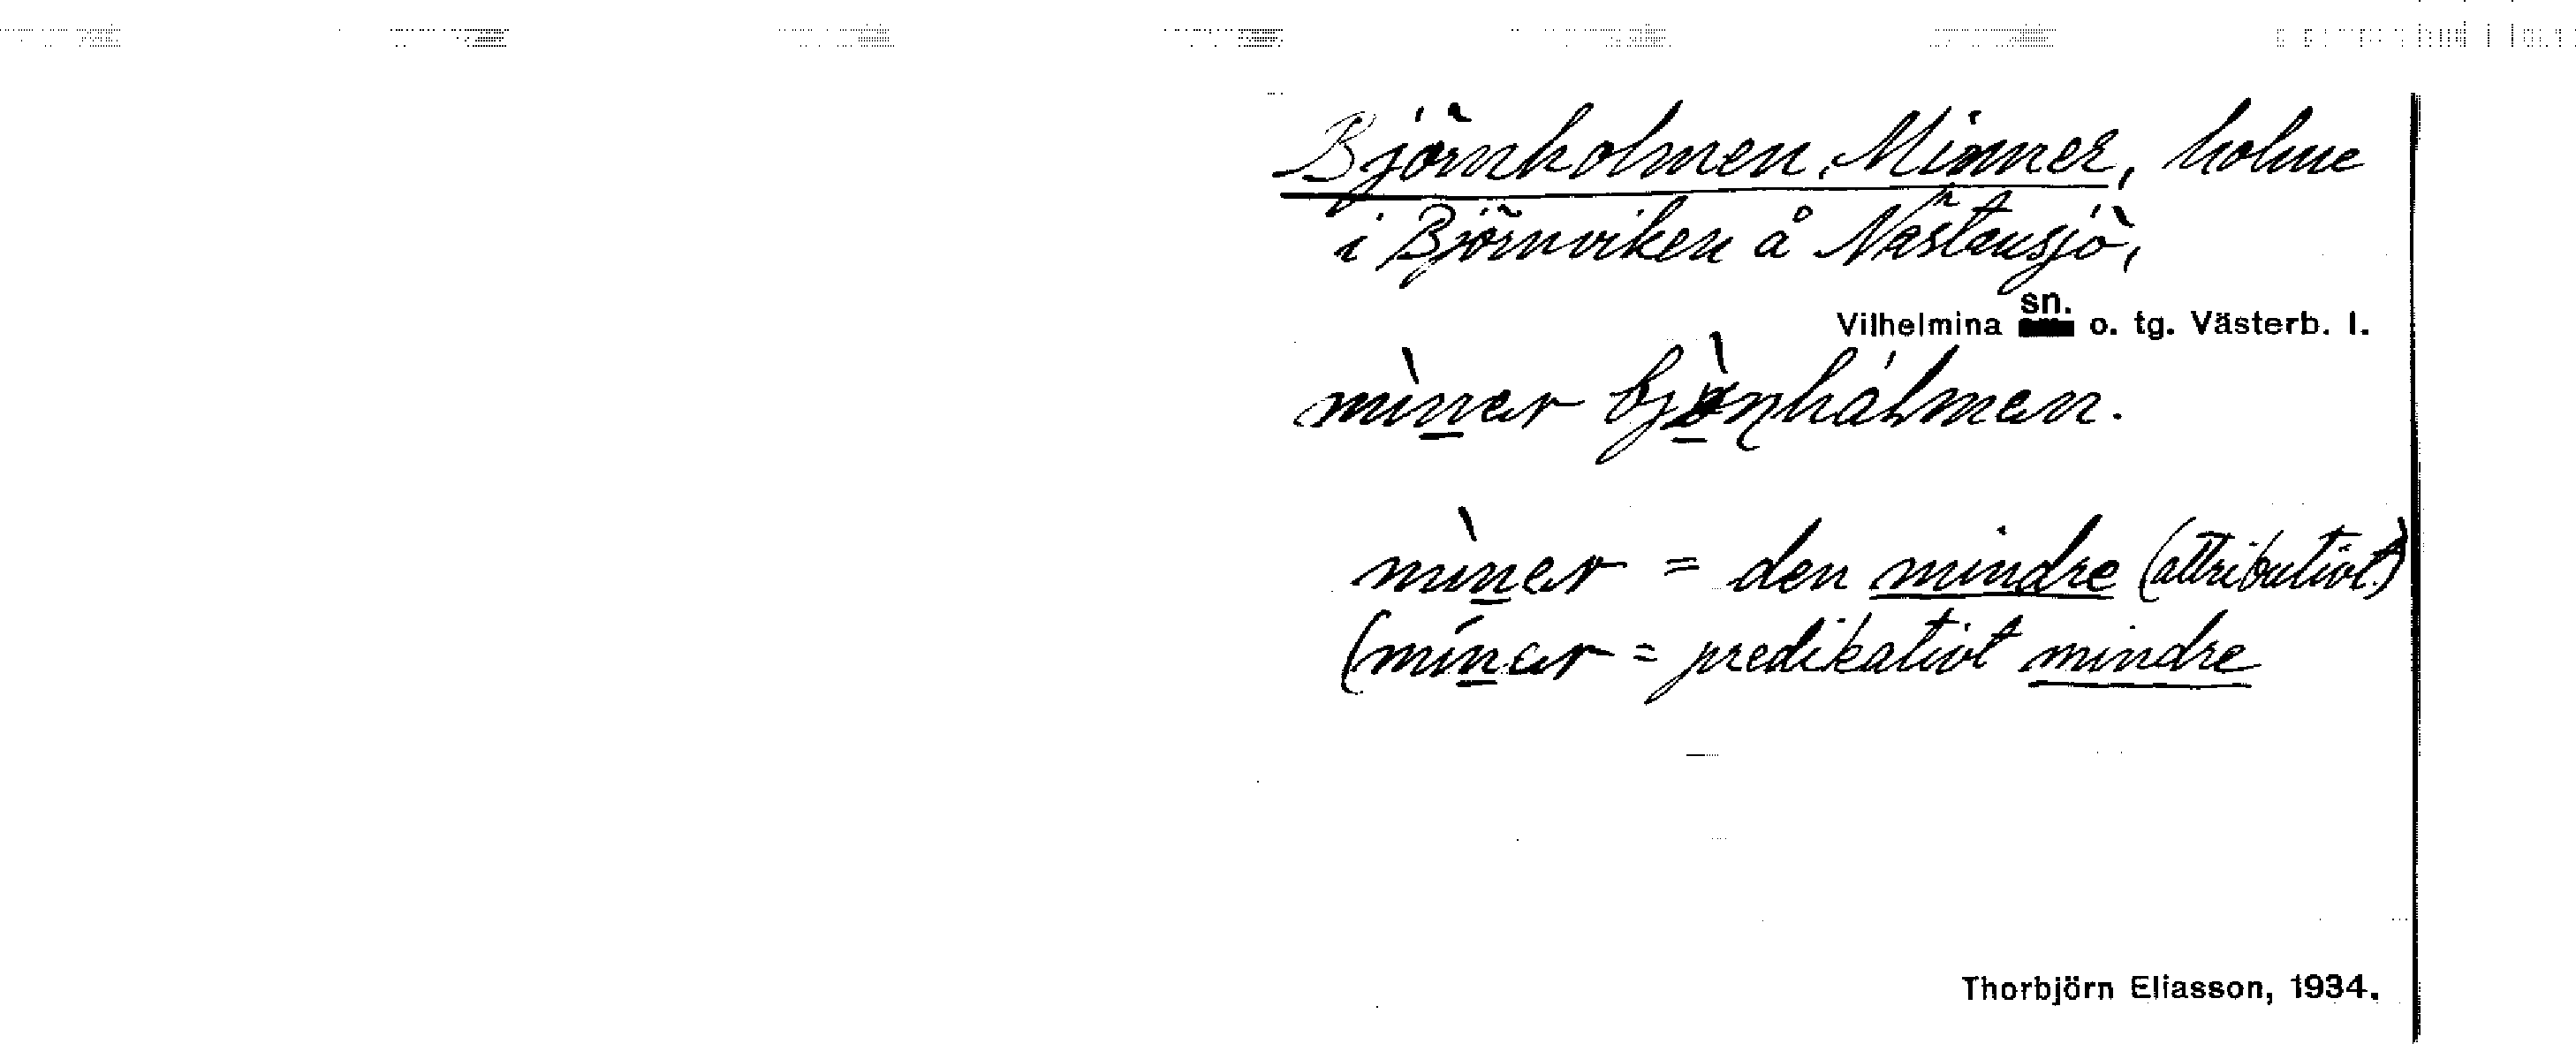 Björnholmen, Minner, holme
i Björnviken å Nästansjö,
Vilhelmina sn. o. tg. Västerb. l.
mìnar bjònhålman.
mìnar = den mindre (attributivt)
(mínar = predikativt mindre
Thorbjörn Eliasson, 1934.